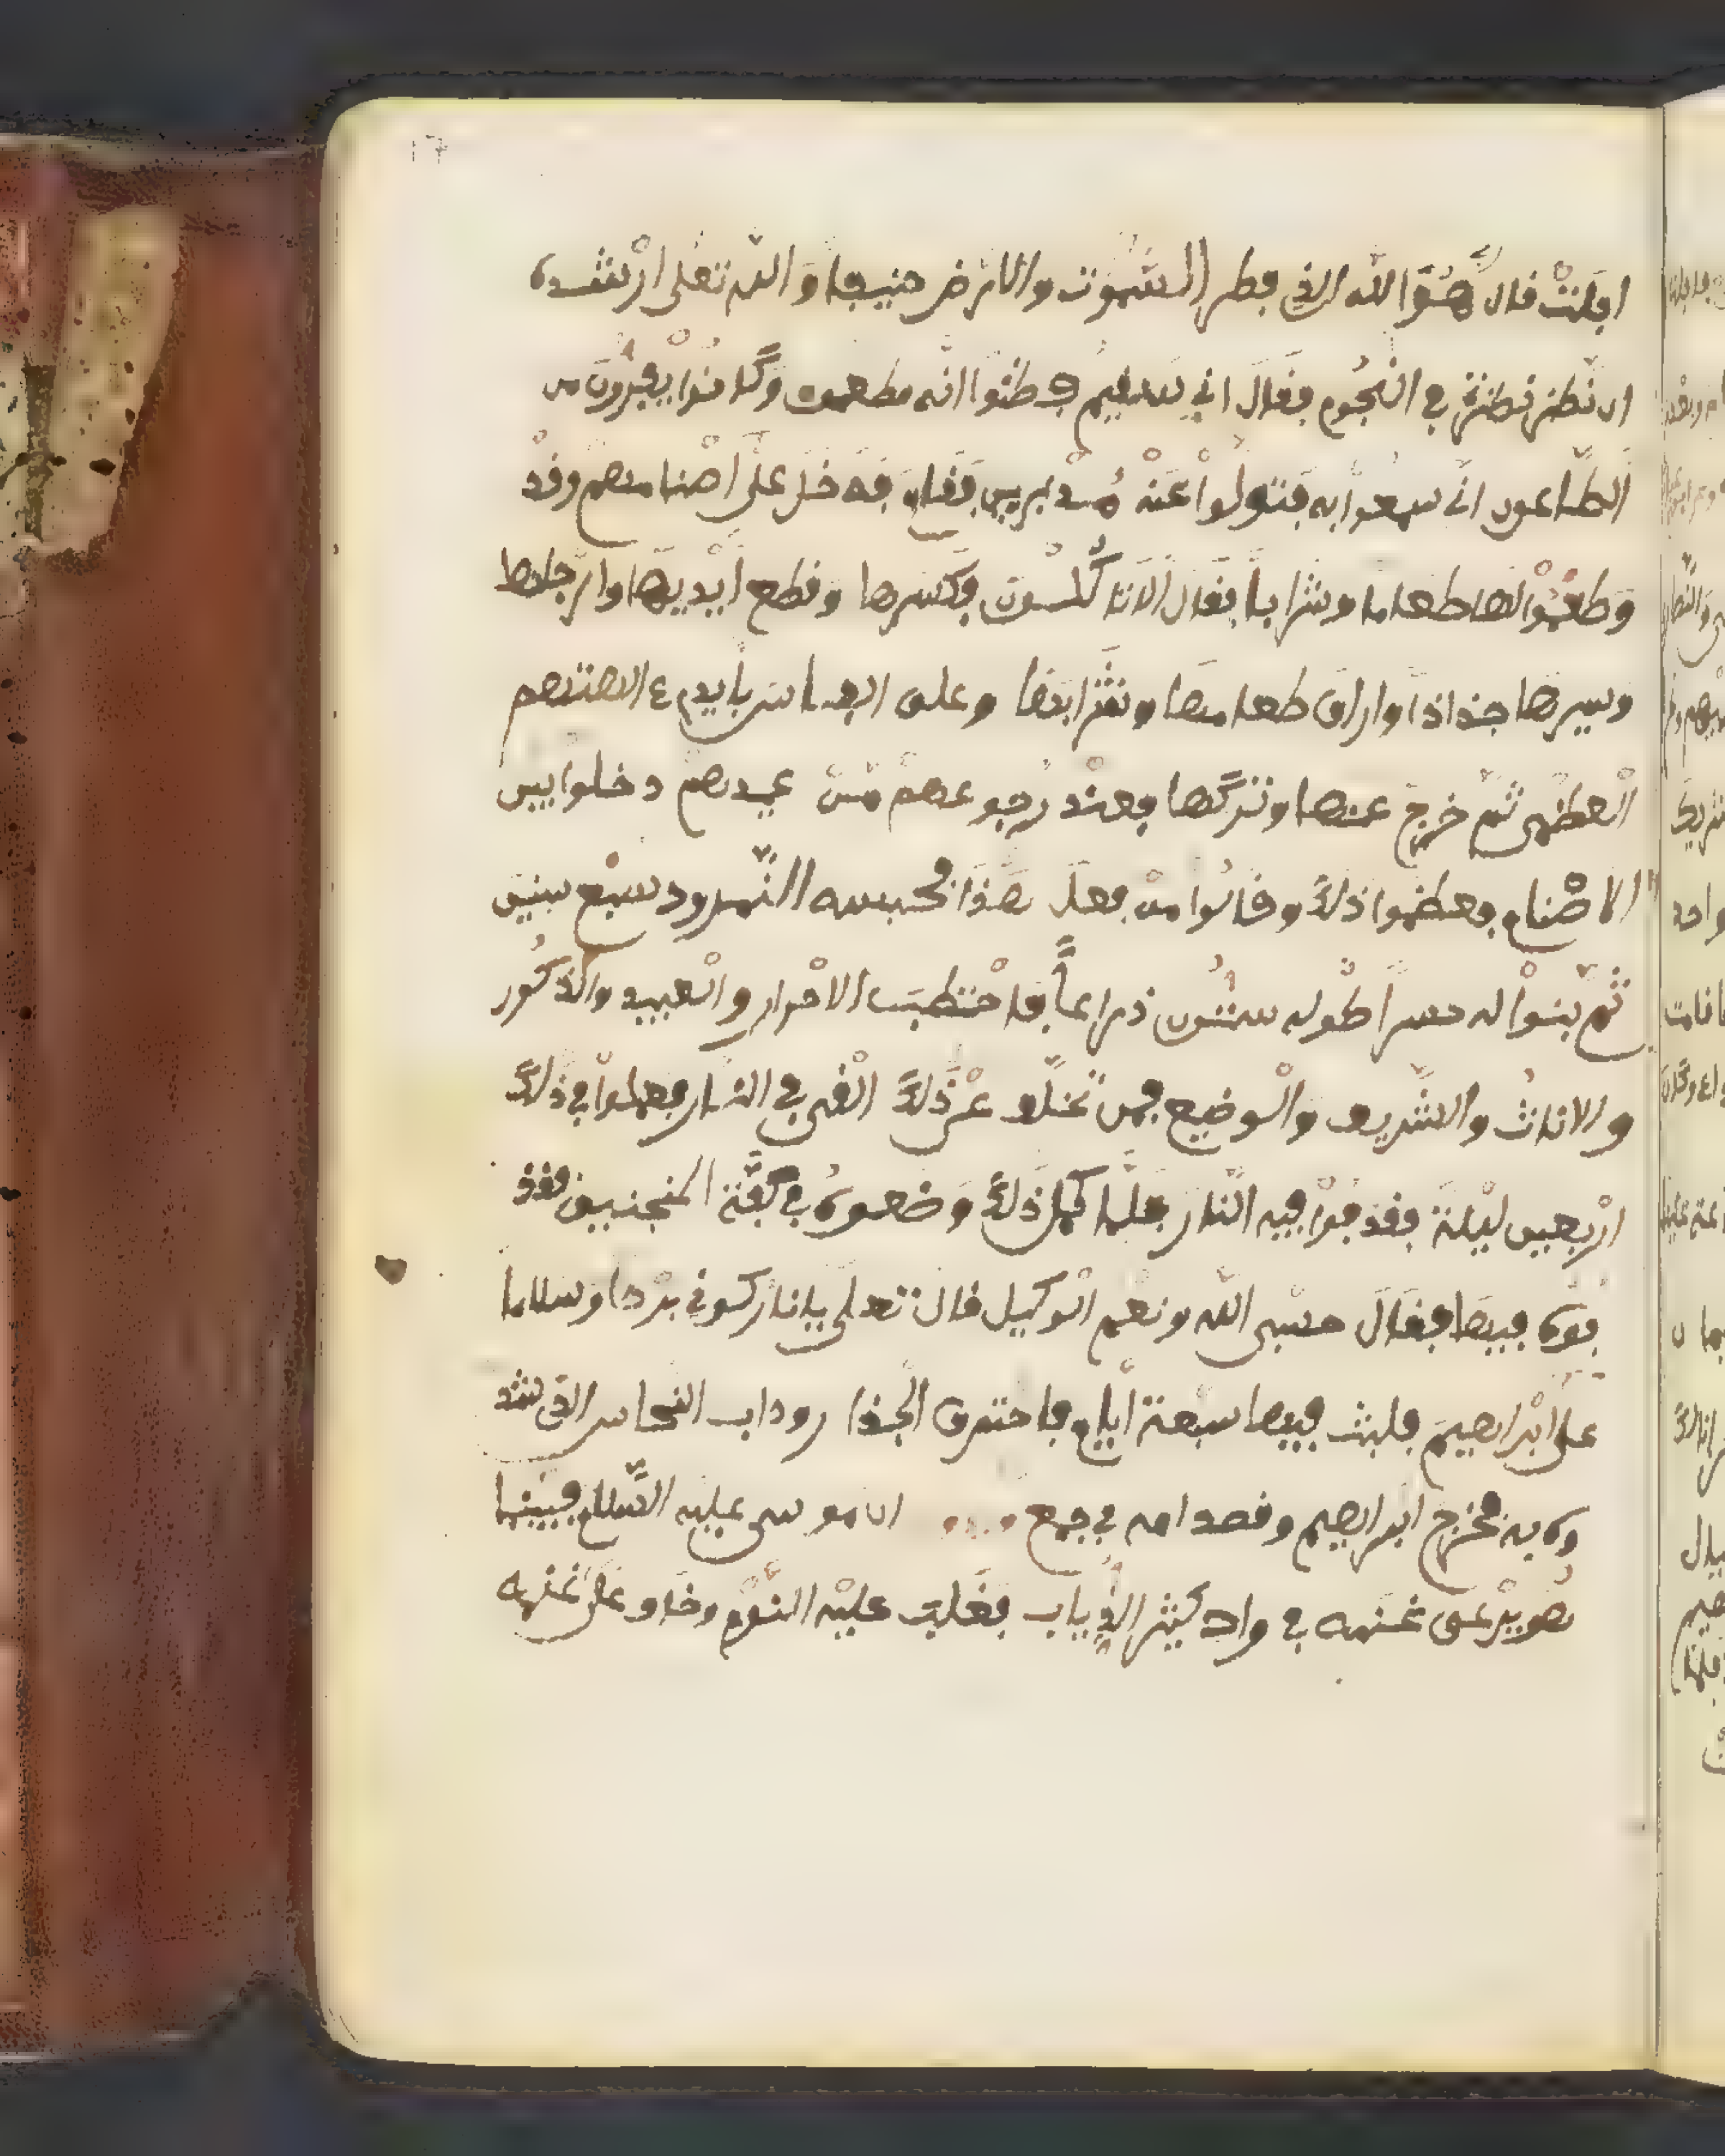 افلت قال هو الله الذي فطر السموت والارض حنيفا والله تعلى ارشده
ان نظر نظرة في النجوم فقال اني سقيم فظنوا انه مطعون وكانوا يفرون من
الطاعون ان سمعوا به فتولوا عنه مدبرين فقام فدخل على اصنامهم وقد
وضعوا لها طعاما وشرابا فقال الا تاكلون فكسرها وقطع ايديها وارجلها
وسيرها جذاذا واراق طعامها وشرابها وعلق الفاس بايدي الهتهم
العظمى ثم خرج عنها وتركها فعند رجوعهم من عيدهم دخلوا بيت
الاصنام فعظموا ذلك وقالوا من فعل هذا فحبسه النمرود سبع سنين
ثم بنوا له حسرا طوله ستون ذراعا فاحتطبت الاحرار والعبيد والذكور
والاناث والشريف والوضيع فمن تخلف عن ذلك القي في النار فعملوا في ذلك
اربعين ليلة فقذفوا فيه النار فلما كمل ذلك وضعوه في كفة المنجنيق فقذ
فوه فيها فقال حسبي الله ونعم الوكيل قال تعلى يانار كوني بردا وسلاما
على ابراهيم فلبث فيها سبعة ايام فاحترق الجدا روداب النحاس الذي شد
وه به فخرج ابراهيم وقصد امه في جمع ان موسى عليه السلام فبينما
هو يرعى غنمه في واد كثير الذياب فغلب عليه النوم وخاف على غنمه